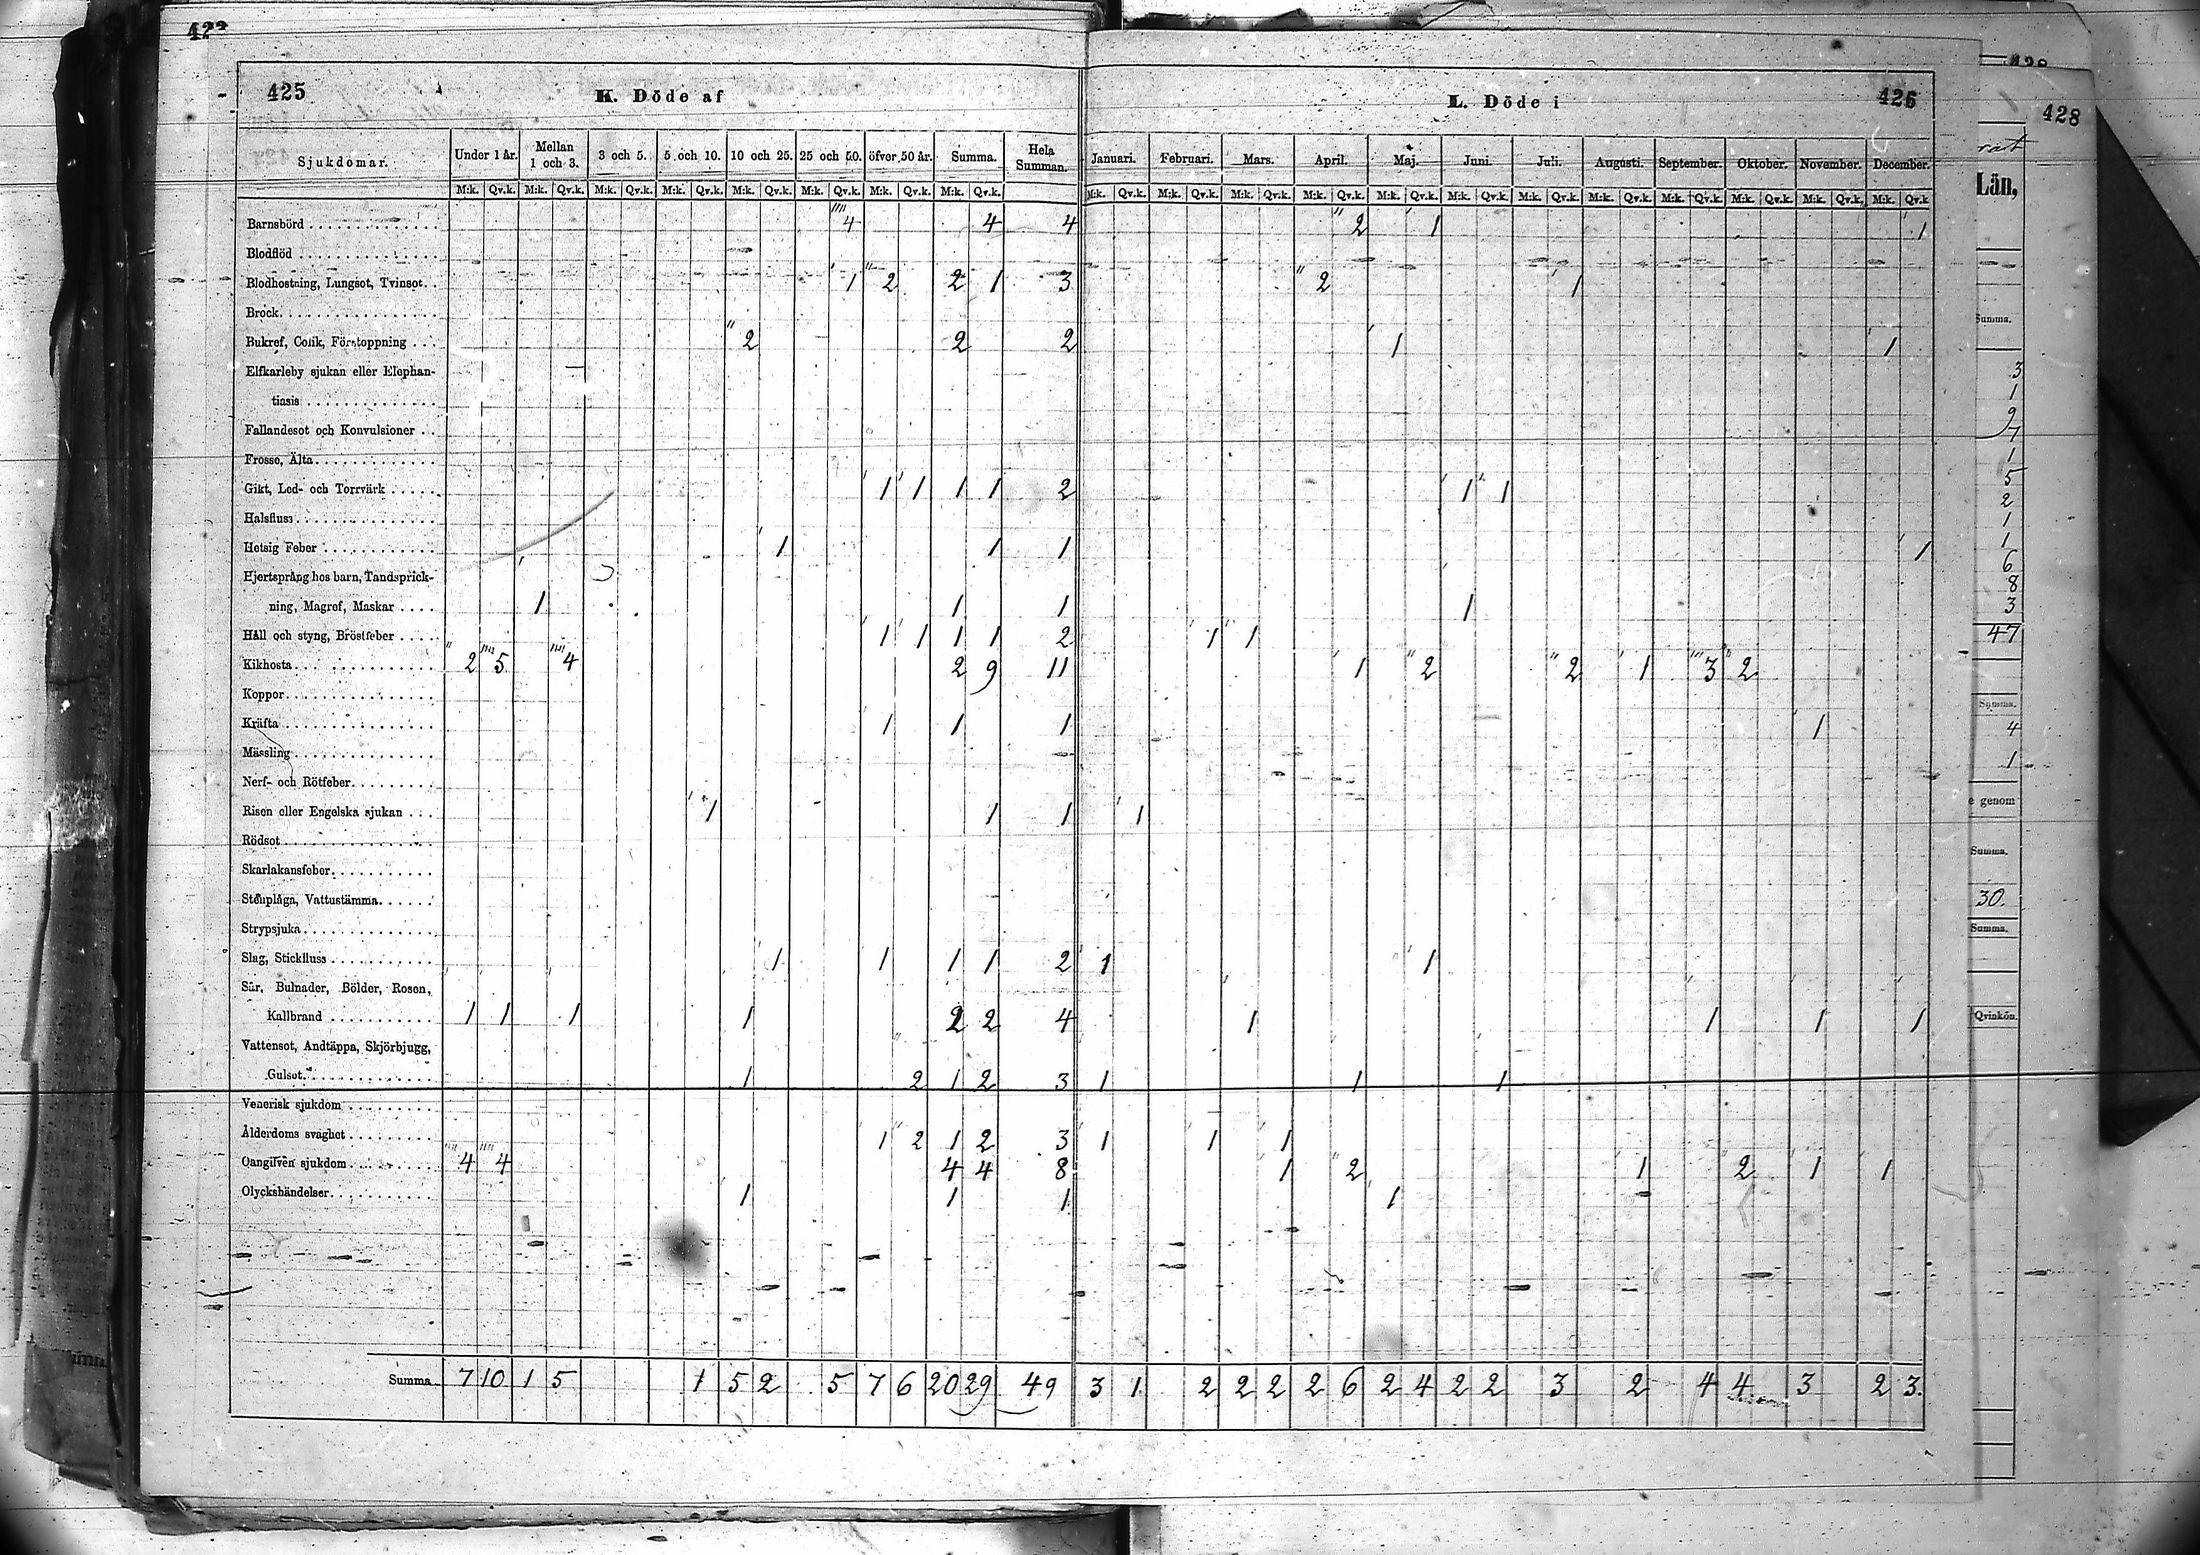 425
K. Döde af
Sjukdomar. Under 1 år. Mellan 1 och 3. 3 och 5. 5 och 10. 10 och 25. 25 och 50. öfver 50 år. Summa. Hela Summan.
M:k. Qv.k. M:k. Qv.k. M:k. Qv.k. M:k. Qv.k. M:k. Qv.k. M:k. Qv.k. M:k. Qv.k. M:k. Qv.k.
Barnsbörd 4 4 4
Blodflöd
Blodhostning, Lungsot, Tvinsot 1 2 2 1 3
Bråck
Bukref, Colik, Förstoppning 2 2 2
Elfkarleby sjukan eller Elephan-
tiasis
Fallandesot och Konvulsioner
Frosse, Älta
Gikt, Led- och Torrvärk 1 1 1 1 2
Halsfluss
Hetsig Feber 1 1 1
Hjertsprång hos barn, Tandsprick-
ning, Magref, Maskar 1 1 1
Håll och styng, Bröstfeber 1 1 1 1 2
Kikhosta 2 5 4 2 9 11
Koppor
Kräfta 1 1 1
Mässling
Nerf- och Rötfeber
Risen eller Engelska sjukan 1 1 1
Rödsot
Skarlakansfeber
Stenplåga, Vattustämma
Strypsjuka
Slag, Stickfluss 1 1 1 1 2
Sår, Bulnader, Bölder, Rosen,
Kallbrand 1 1 1 1 2 2 4
Vattensot, Andtäppa, Skjörbjugg,
Gulsot 1 2 1 2 3
Venerisk sjukdom
Ålderdoms svaghet 1 2 1 2 3
Oangifven sjukdom 4 4 4 4 8
Olyckshändelser 1 1 1
Summa 7 10 1 5 1 5 2 5 7 6 20 29 49
L. Döde i
426
Januari. Februari. Mars. April. Maj. Juni. Juli. Augusti. September. Oktober. November. December.
M:k. Qv.k. M:k. Qv.k. M:k. Qv.k. M:k. Qv.k. M:k. Qv.k. M:k. Qv.k. M:k. Qv.k. M:k. Qv.k. M:k. Qv.k. M:k. Qv.k. M:k. Qv.k. M:k. Qv.k
2 1 1
2 1
1 1
1 1
1
1
1 1
1 2 2 1 3 2
1
1
1 1
1 1 1 1
1 1 1
1 1 1
1 2 1 2 1 1
1
3 1 2 2 2 2 6 2 4 2 2 3 2 4 4 3 2 3
428
Län,
Summa.
3
1
9
7
1
5
2
1
1
6
8
3
47
Summa.
4
1
genom
Summa.
30.
Summa.
Qvinkön.